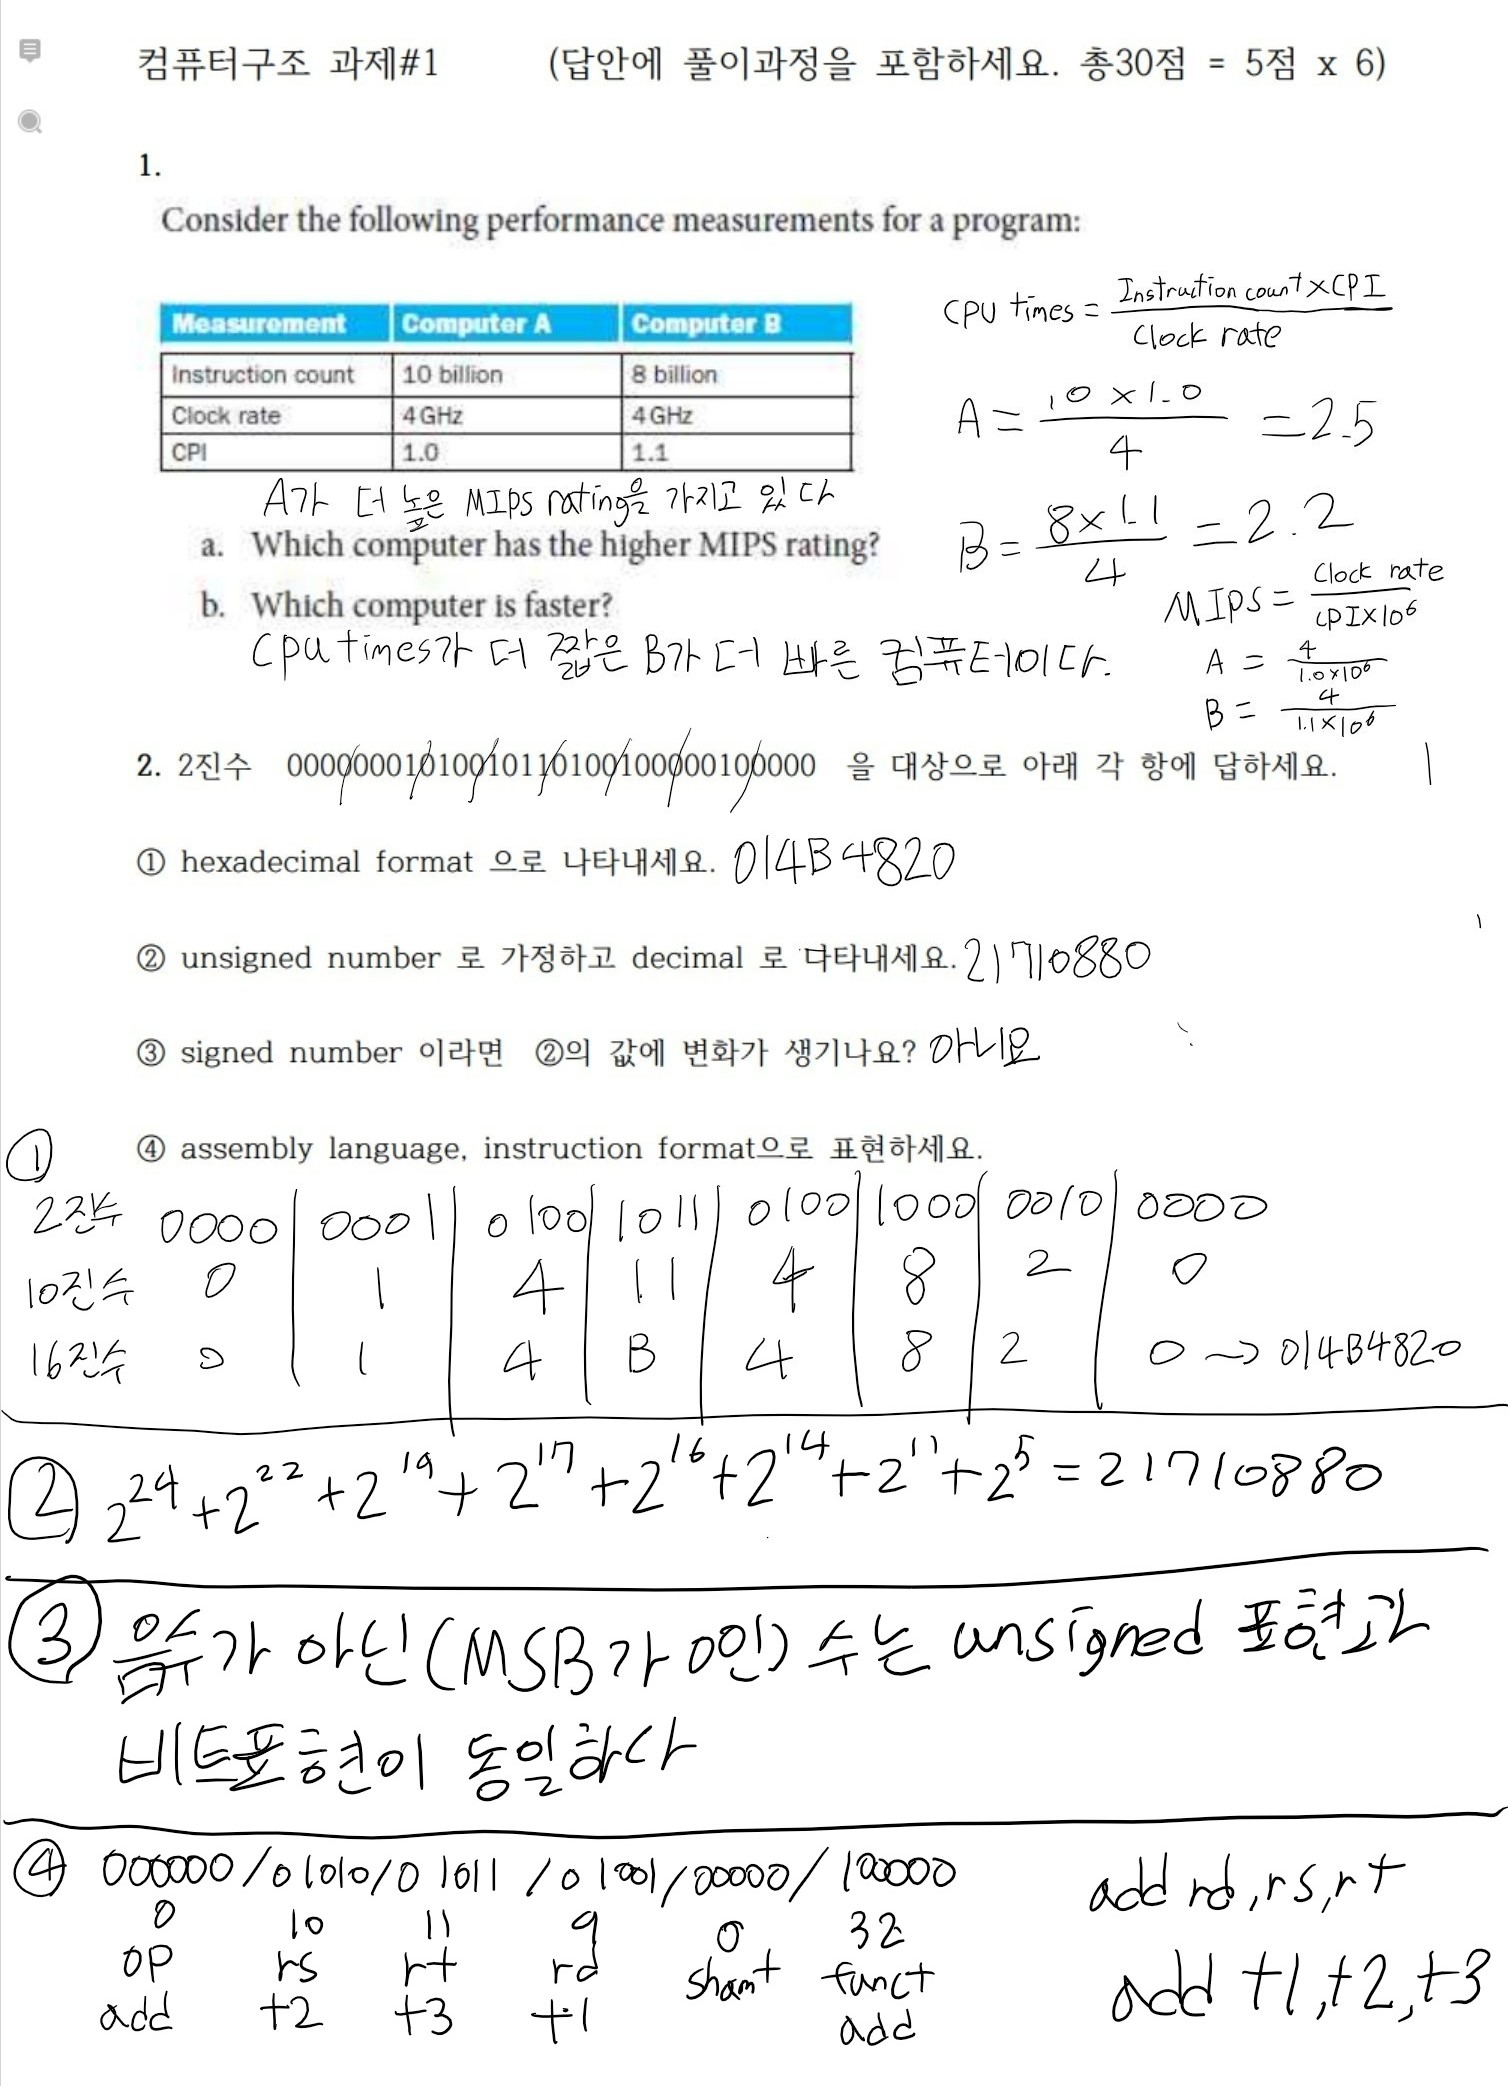 컴퓨터구조 과제#1 (답안에 풀이과정을 포함하세요. 총30점 = 5점 x 6)
1.
Consider the following performance measurements for a program:
Measurement Computer A Computer B
Instruction count 10 billion 8 billion
Clock rate 4 GHz 4 GHz
CPI 1.0 1.1
CPU times = Instruction count × CPI / Clock rate
A = 10 × 1.0 / 4 = 2.5
B = 8 × 1.1 / 4 = 2.2
A가 더 높은 MIPS rating을 가지고 있다
a. Which computer has the higher MIPS rating?
b. Which computer is faster?
Cpu times가 더 짧은 B가 더 빠른 컴퓨터이다.
MIPS = Clock rate / CPI×10⁶
A = 4 / 1.0×10⁶
B = 4 / 1.1×10⁶
2. 2진수 00000001010010110100100000100000 을 대상으로 아래 각 항에 답하세요.
① hexadecimal format 으로 나타내세요. 014B4820
② unsigned number 로 가정하고 decimal 로 다타내세요. 21710880
③ signed number 이라면 ②의 값에 변화가 생기나요? 아니요
④ assembly language, instruction format으로 표현하세요.
①
2진수 0000 0001 0100 1011 0100 1000 0010 0000
10진수 0 1 4 11 4 8 2 0
16진수 0 1 4 B 4 8 2 0 → 014B4820
② 2²⁴+2²²+2¹⁹+2¹⁷+2¹⁶+2¹⁴+2¹¹+2⁵ = 21710880
③ 음수가 아닌(MSB가 0인) 수는 unsigned 표현과
비트표현이 동일하다
④ 000000/01010/01011/01001/00000/100000
0 10 11 9 0 32
op rs rt rd shamt funct
add t2 t3 t1 add
add rd,rs,rt
add t1,t2,t3